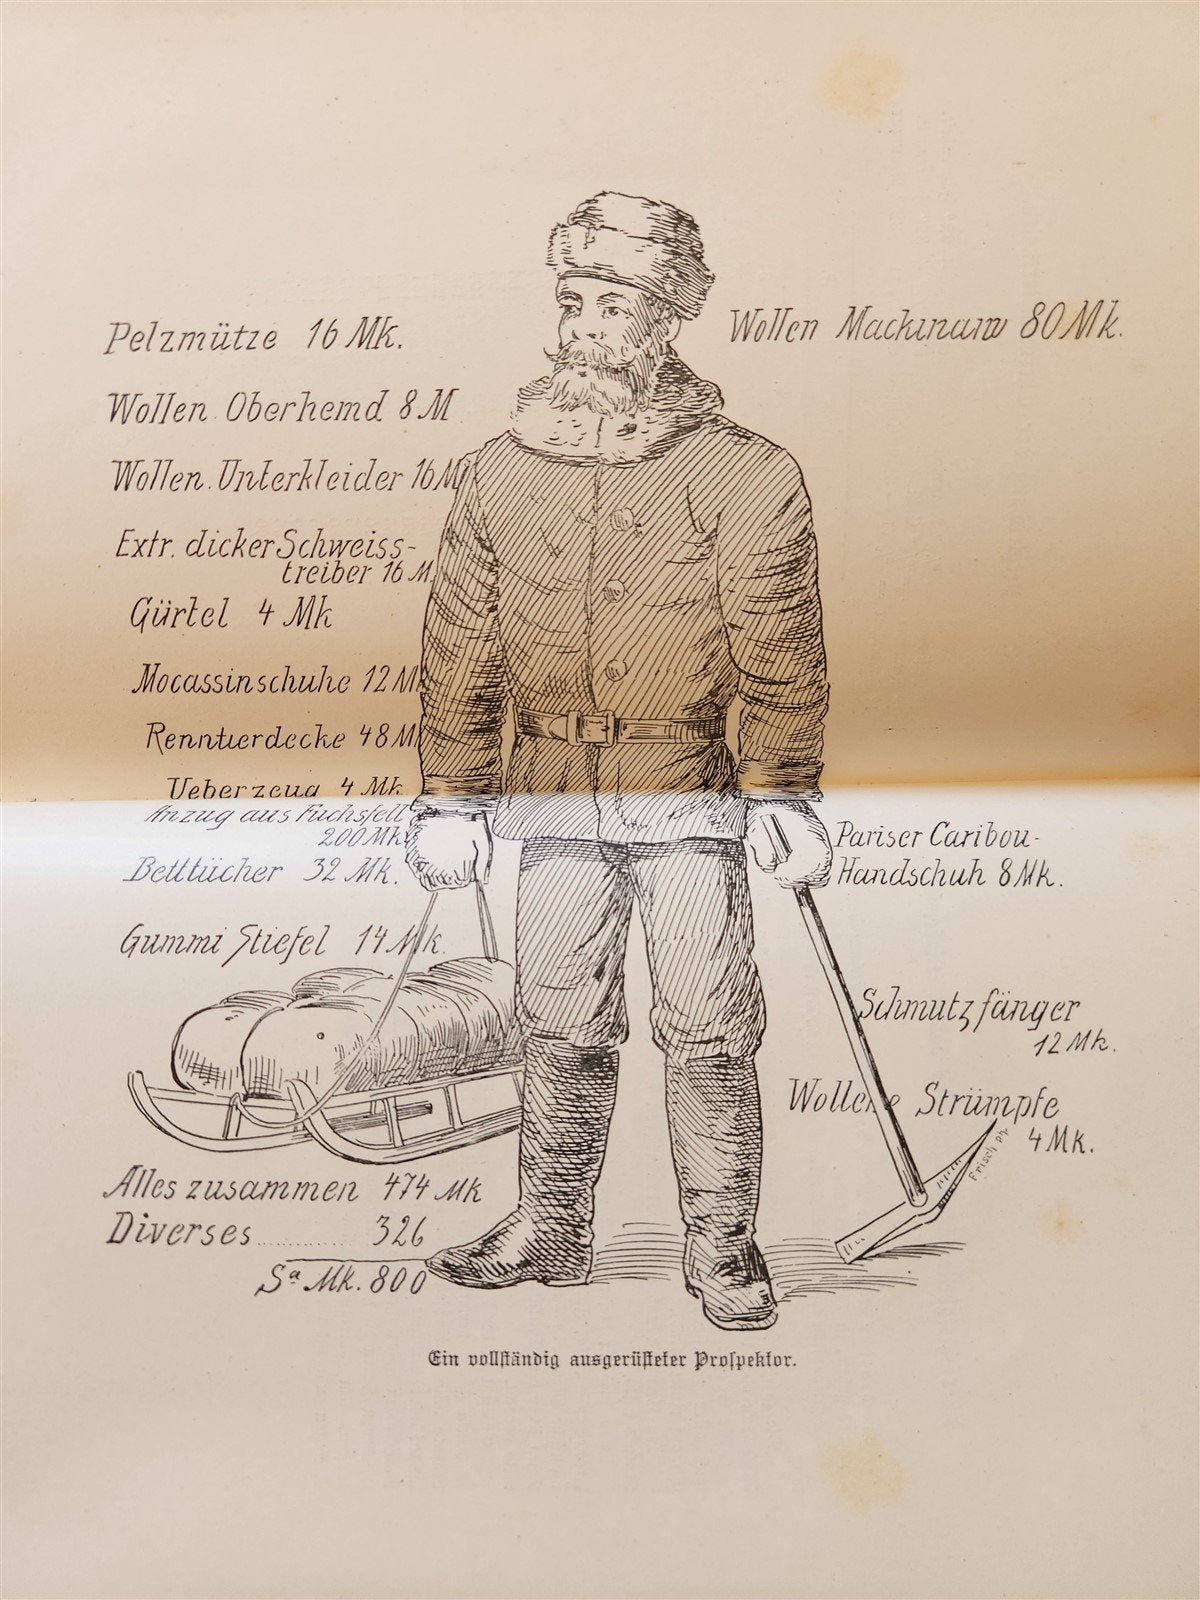 Pelzmütze 16 Mk.
Wollen Mackinaw 80 Mk.
Wollen Oberhemd 8 M
Wollen. Unterkleider 16 M
Extr. dicker Schweiss-
treiber 16 M.
Gürtel 4 Mk
Mocassinschuhe 12 M
Renntierdecke 48 M
Ueberzeug 4 Mk
Anzug aus Fuchsfell
200 Mk
Betttücher 32 Mk.
Gummi Stiefel 14 Mk.
Pariser Caribou-
Handschuh 8 Mk.
Schmutzfänger
12 Mk.
Wollene Strümpfe
4 Mk.
Frisch ph.
Alles zusammen 474 Mk
Diverses ............ 326
Sa Mk. 800
Ein vollständig ausgerüsteter Prospektor.